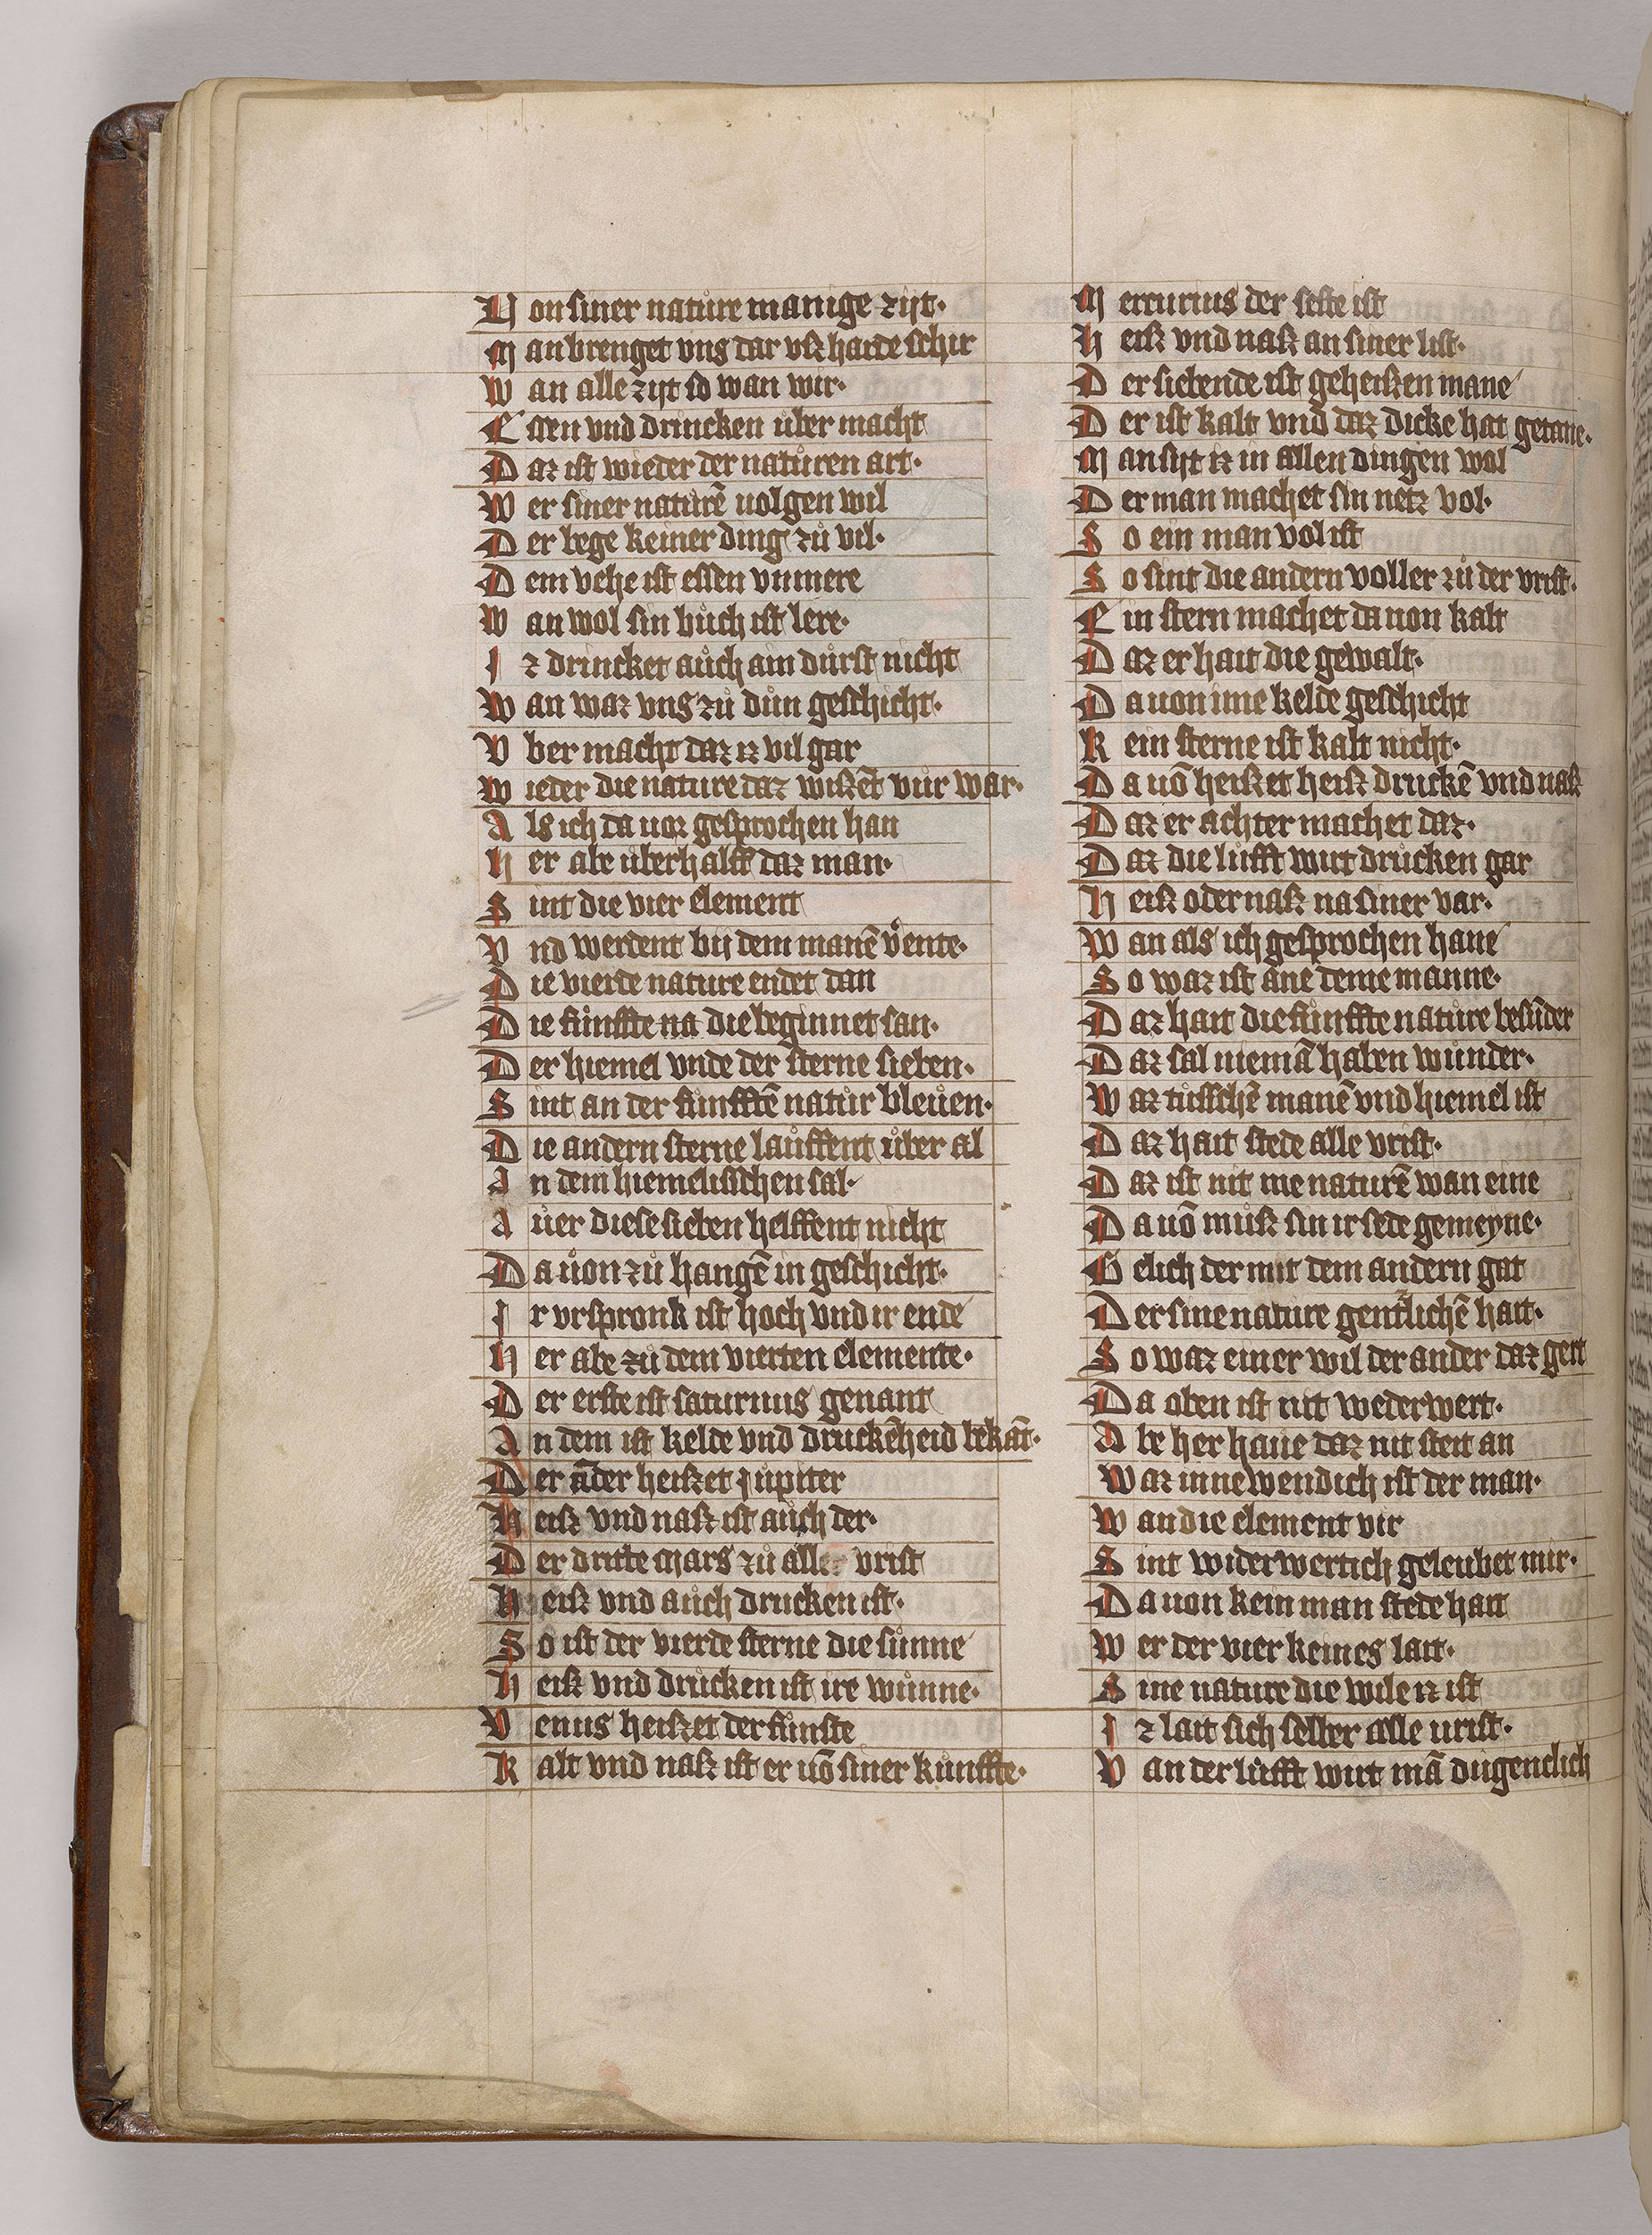 Von siner natůre manige zijt·
Man brenget vns dar vsz harte schir
Wan alle zijt so wan wir·
Essen vnd drincken uͤber macht
Daz ist wieder der natůren art·
Wer siner naturē uolgen wil
Der lege keiner ding zů vil·
Dem vehe ist essen vnmere
Wan wol sin buͦch ist lere·
Iz drincket auͦch ain duͦrst nicht
Wan waz vns zů důn geschicht·
Vber macht daz iz vil gar
Wieder die nature daz wiszēt vuͤr war·
Als ich da uor gesprochen han
Her abe uͤberhalff daz man·
Sint die vier element
Vnd werdent bij dem manē vente·
Die vierde nature endet dan
Die fuͤnffte na die beginnet san·
Der hiemel vnde der sterne sieben·
Sint an der fuͤnfftē natůr bleuen·
Die andern sterne lauffent uͤber al
An dem hiemelisschen sal·
Auer diese sieben helffent nicht
Da uon zů hangē in geschicht·
Ir vrspronk ist hoch vnd ir ende
Her abe zů dem vierten elemente·
Der erste ist saturnus genant
An dem ist kelde vnd druckēheid bekāt·
Der āder heiszet Jupiter
Heisz vnd nasz ist auch der·
Der dritte Mars zů aller vrist
Heisz vnd auch drucken ist·
So ist der vierde sterne die sůnne
Heisz vnd drucken ist ire wůnne·
Venus heiszet der fůnfte
Kalt vnd nasz ist er uō siner kůnffte·
Mercurius der seste ist
Heisz vnd nasz an siner list·
Der siebende ist geheiszen mane
Der ist kalt vnd daz dicke hat getane·
Man siht iz in allen dingen wol
Der man machet sin netz vol·
So ein man vol ist
So sint die andern voller zů der vrist·
Ein stern machet da uon kalt
Daz er hait die gewalt·
Da uon ime kelde geschicht
Kein sterne ist kalt nicht·
Da uō heiszet heisz druckē vnd nasz
Daz er achter machet daz·
Daz die lůfft wirt drůcken gar
Heisz oder nasz na siner var·
Wan als ich gesprochen haue
So waz ist ane deme manne·
Daz hait die fůnffte natůre besūder
Daz sal niemā haben wůnder·
Waz tůsschē manē vnd hiemel ist
Daz hait stede alle vrist·
Daz ist nit me naturē wan eine
Da uō můsz sin ir sede gemeyne·
Gelich der mit dem andern gat
Der sine nature gentzlichē hait·
So waz einer wil der ander daz gert
Da oben ist nit wederwert·
Abe her haue daz nit steit an
Waz innewendich ist der man·
Wan die element vir
Sint widerwertich geleubet mir·
Da uon kein man stede hait
Wer der vier keines lait·
Sine nature die wile iz ist
Iz lait sich selber alle urist·
Van der lůfft wirt mā dugentlich